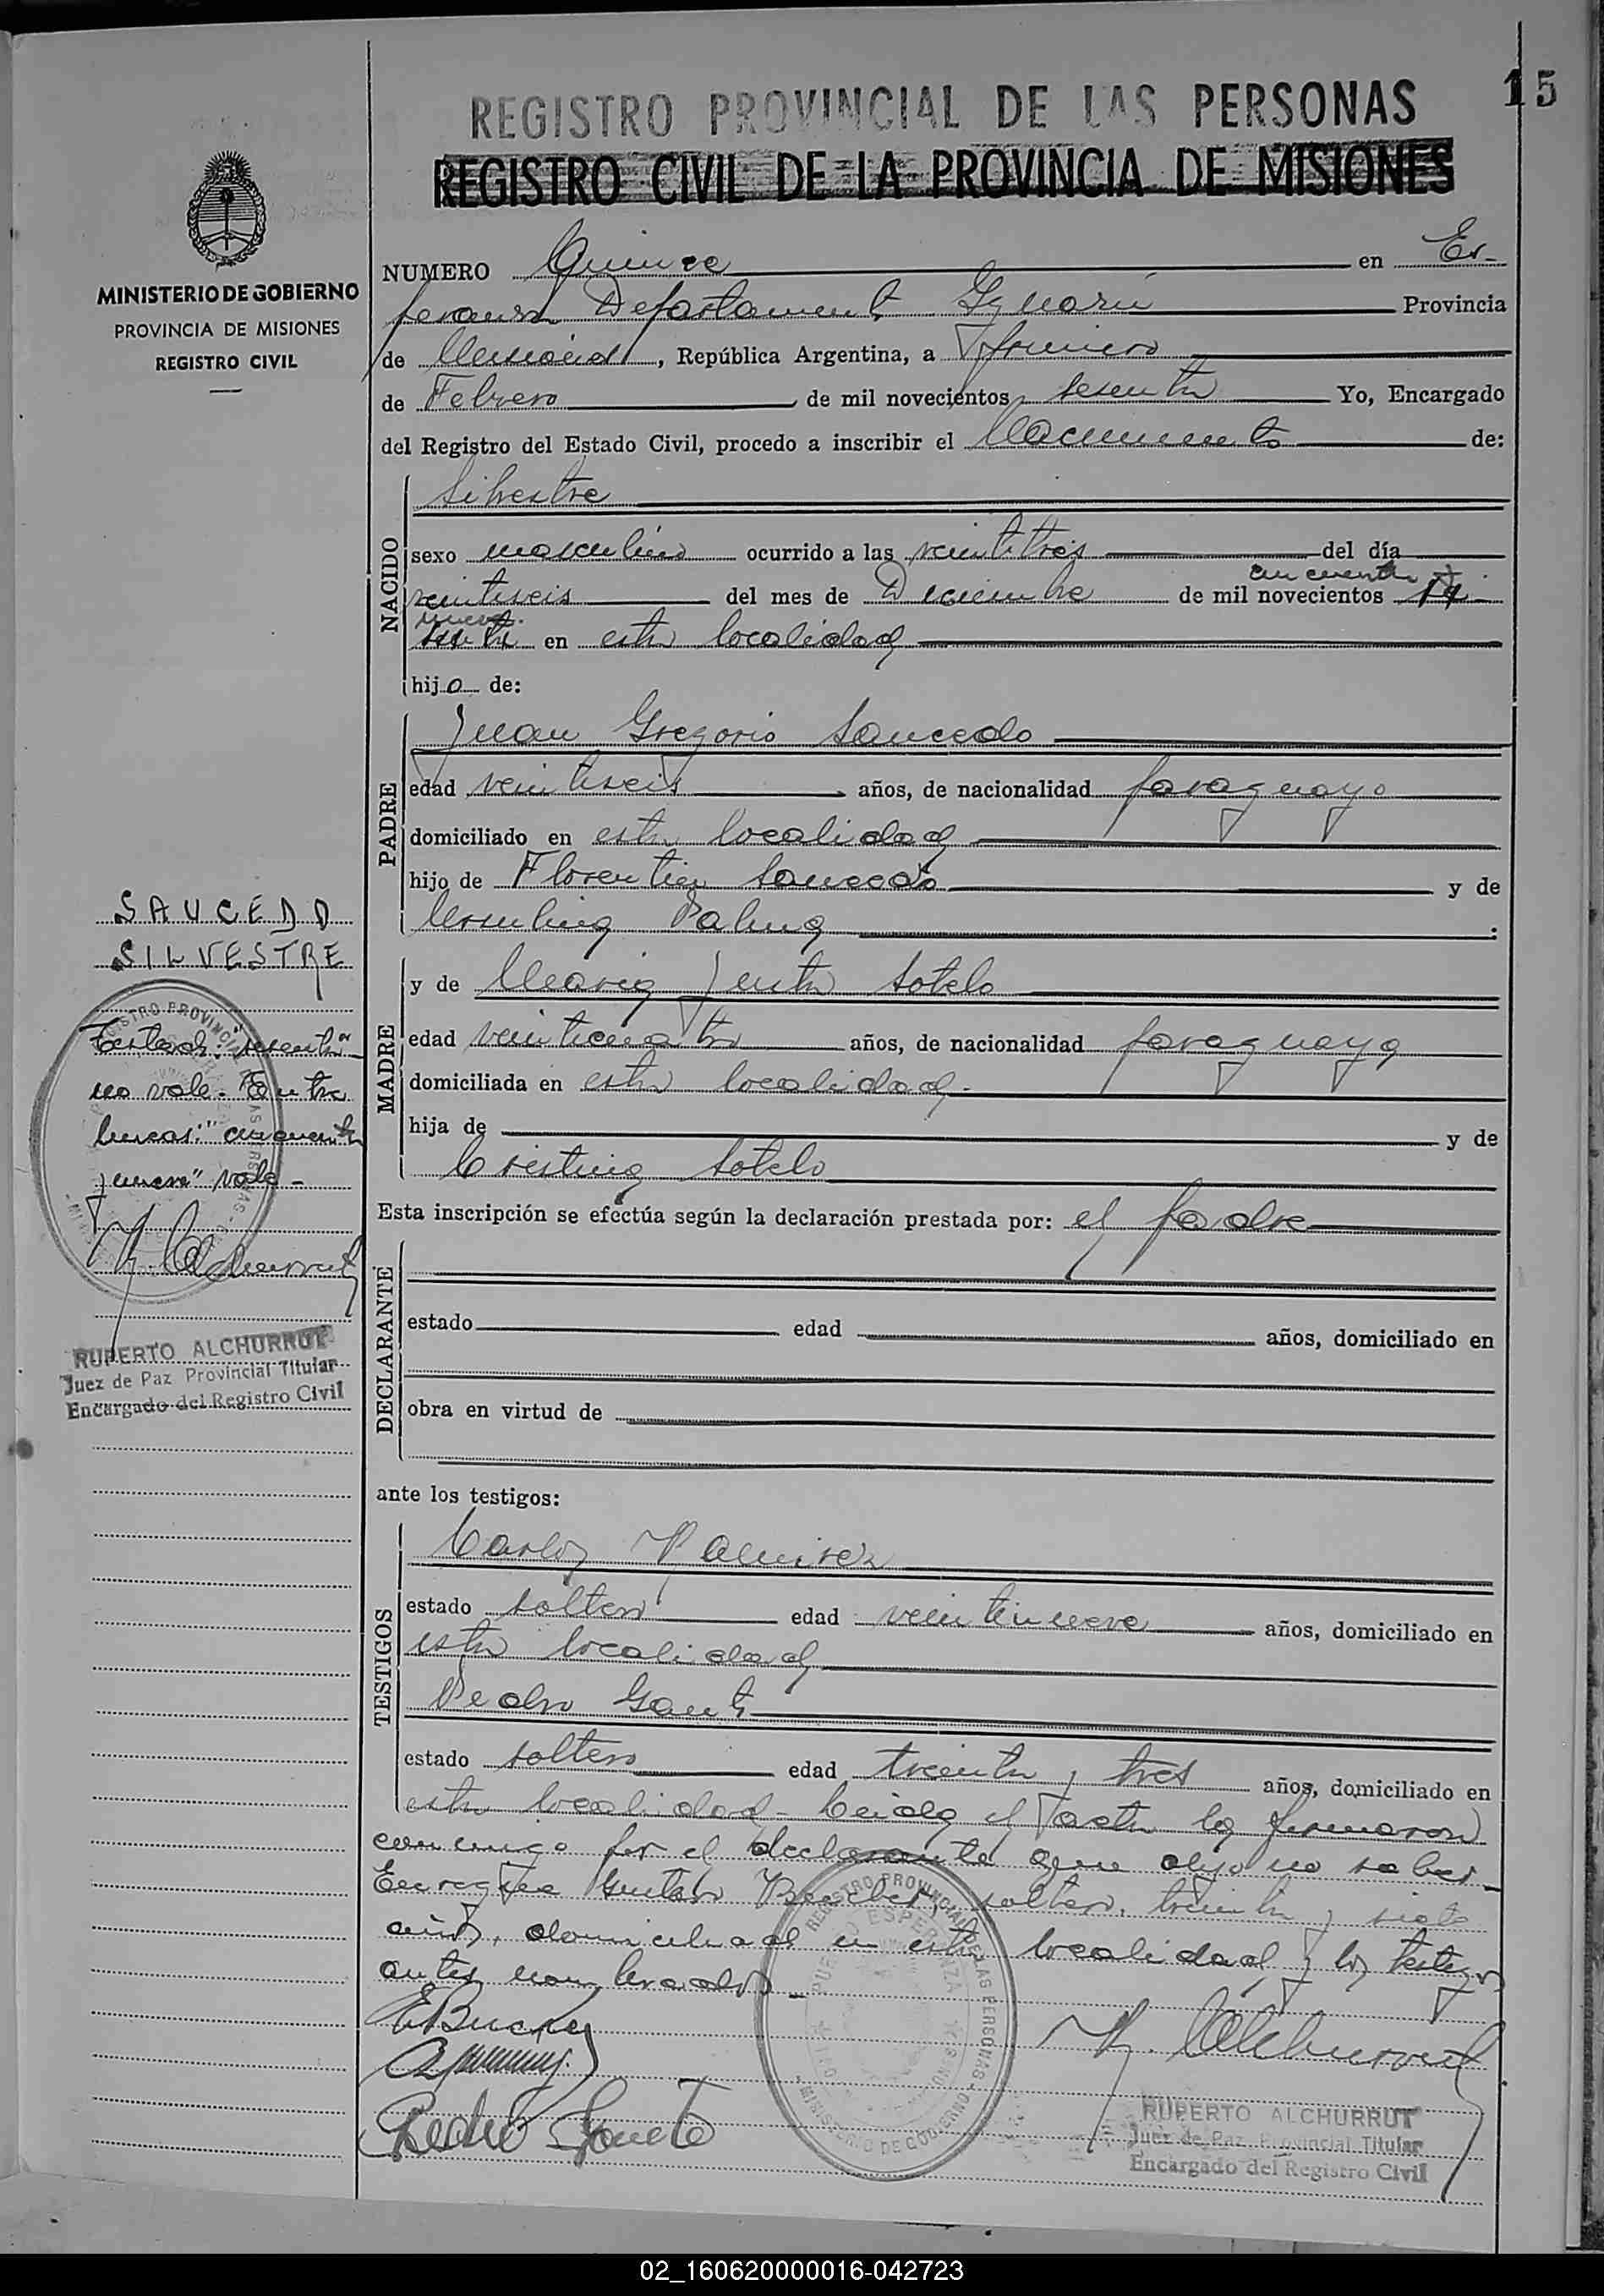 15
REGISTRO PROVINCIAL DE LAS PERSONAS
REGISTRO CIVIL DE LA PROVINCIA DE MISIONES
MINISTERIO DE GOBIERNO
PROVINCIA DE MISIONES
REGISTRO CIVIL
NUMERO Quince en Es-
peranza Departamento Iguazú Provincia
de Misiones, República Argentina, a primero
de Febrero de mil novecientos sesenta Yo, Encargado
del Registro del Estado Civil, procedo a inscribir el Nacimiento de:
NACIDO
Silvestre
sexo masculino ocurrido a las veintitres del día
cincuenta y
veintiseis del mes de Diciembre de mil novecientos
nueve
sesenta en esta localidad
hijo de:
PADRE
Juan Gregorio Saucedo
edad veintiseis años, de nacionalidad paraguayo
domiciliado en esta localidad
hijo de Florentin Saucedo y de
Ursulina :
MADRE
y de Maria Justa Sotelo
edad veinticuatro años, de nacionalidad paraguaya
domiciliada en esta localidad.
hija de y de
Cristina Sotelo
Esta inscripción se efectúa según la declaración prestada por: el padre
DECLARANTE
estado edad años, domiciliado en
obra en virtud de
ante los testigos:
TESTIGOS
Carlos Ramirez
estado soltero edad veintinueve años, domiciliado en
esta localidad
Pedro Gauto
estado soltero edad treinta y tres años, domiciliado en
esta localidad - Leida el acta la firmaron
conmigo por el declarante que dijo no saber
Enrique Gustavo soltero, treinta y siete
años, domiciliado en esta localidad y los testigos
antes nombrados -
Pedro Gauto
REGISTRO PROVINCIAL DE LAS PERSONAS
PUERTO ESPERANZA
MISIONES
MINISTERIO DE GOBIERNO
R. Alchurrut
RUPERTO ALCHURRUT
Juez de Paz Provincial Titular
Encargado del Registro Civil
SAUCEDO
SILVESTRE
Testado: "sesenta"
no vale. Entre
lineas: "cincuenta
y nueve" vale -
R. Alchurrut
RUPERTO ALCHURRUT
Juez de Paz Provincial Titular
Encargado del Registro Civil
02_160620000016-042723